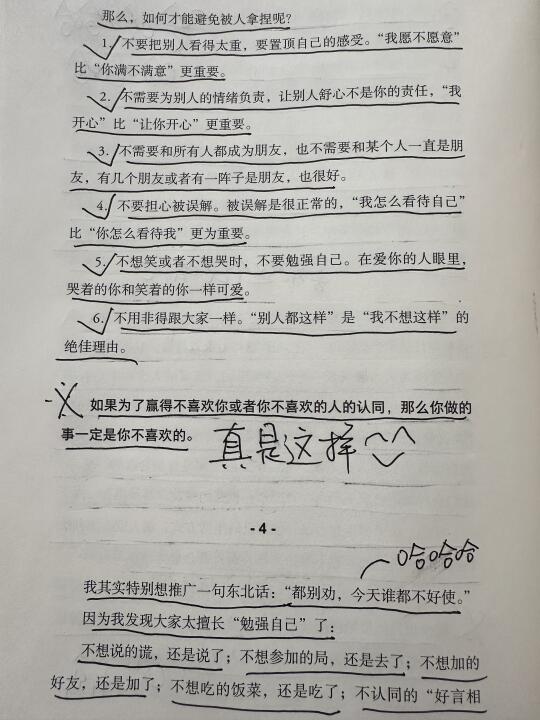 那么，如何才能避免被人拿捏呢？
1. 不要把别人看得太重，要置顶自己的感受。“我愿不愿意”
比“你满不满意”更重要。
2. 不需要为别人的情绪负责，让别人舒心不是你的责任，“我
开心”比“让你开心”更重要。
3. 不需要和所有人都成为朋友，也不需要和某个人一直是朋
友，有几个朋友或者有一阵子是朋友，也很好。
4. 不要担心被误解。被误解是很正常的，“我怎么看待自己”
比“你怎么看待我”更为重要。
5. 不想笑或者不想哭时，不要勉强自己。在爱你的人眼里，
哭着的你和笑着的你一样可爱。
6. 不用非得跟大家一样。“别人都这样”是“我不想这样”的
绝佳理由。
如果为了赢得不喜欢你或者你不喜欢的人的认同，那么你做的
事一定是你不喜欢的。
真是这样
- 4 -
哈哈哈
我其实特别想推广一句东北话：“都别劝，今天谁都不好使。”
因为我发现大家太擅长“勉强自己”了：
不想说的谎，还是说了；不想参加的局，还是去了；不想加的
好友，还是加了；不想吃的饭菜，还是吃了；不认同的“好言相